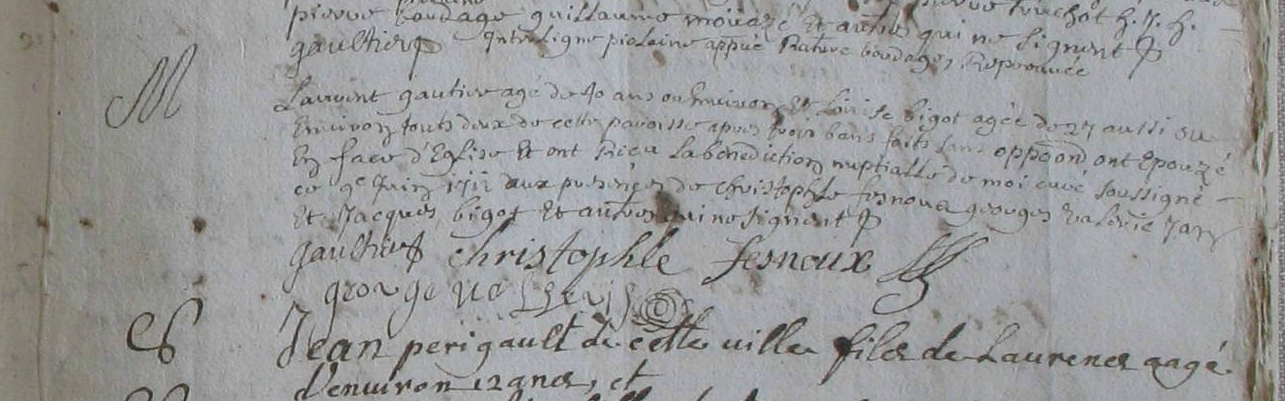 pierre boudage guillaume mouazé Et autres qui ne signent
gaultier Interligne piolaine appué Rature boudages Reprouvée
M
Laurent gautier agé de 40 ans ou Environ Et Louise bigot agée de 27 aussi ou
Environ touts deux de cette paroisse apres trois bans faits sans oppoõn ont Epouzé
En face d'Eglise Et ont Reçu La benediction nuptialle de moi curé soussigné
ce 9e Juin 1712 aux presences de christophle fesnoux georges Valerie Jan
Et Jacques bigot Et autres qui ne signent
gaultier christophle fesnoux
george
S
Jean perigault de cette ville fils de Laurence aagé
d'enuiron 12 ans, et